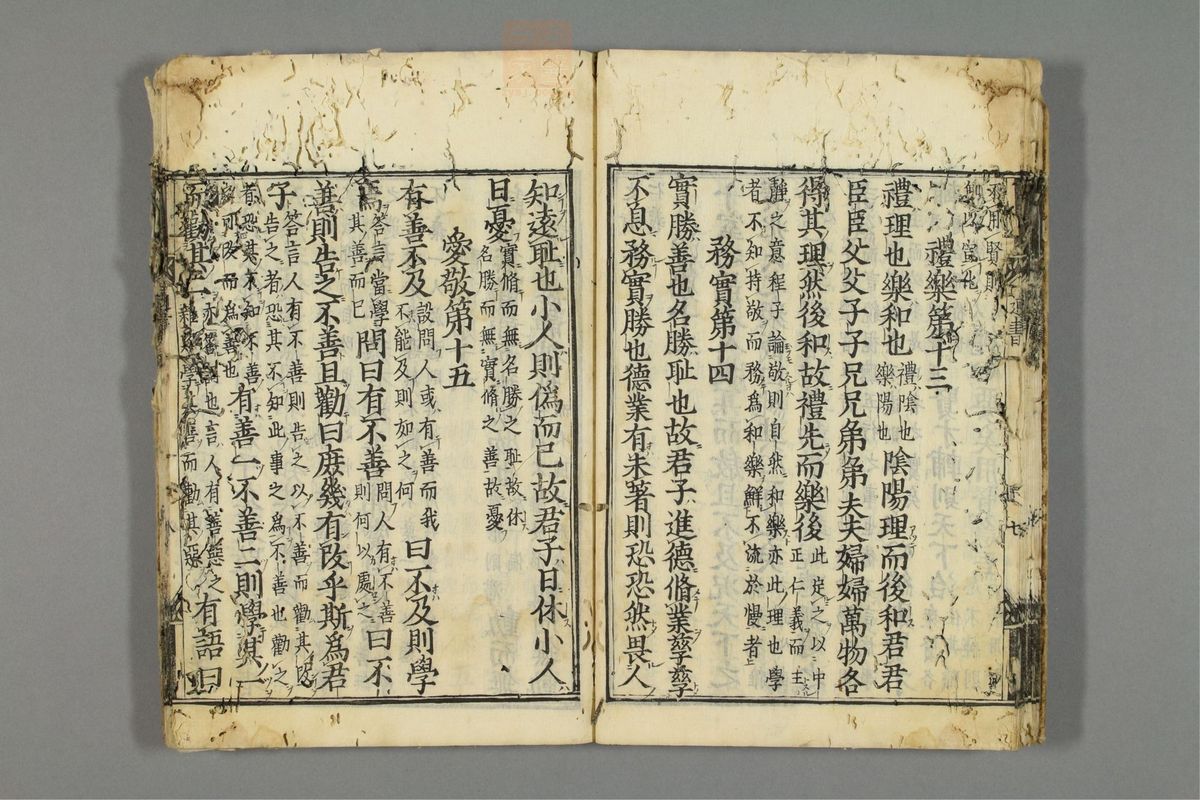 禮樂第十三
禮理也樂和也
禮陰也
樂陽也
陰陽理而後和君君
臣臣父父子子兄兄弟弟夫夫婦婦萬物各
得其理然後和故禮先而樂後
此定之以中
正仁義而主
靜之意程子論敬則自然和樂亦此理也學
者不知持敬而務爲和樂鮮不流於慢者
務實第十四
實勝善也名勝耻也故君子進德脩業孳孳
不息務實勝也德業有未著則恐恐然畏人
知遠耻也小人則僞而已故君子日休小人
日憂
實脩而無名勝之耻故休
名勝而無實脩之善故憂
愛敬第十五
有善不及
設問人或有善而我
不能及則如之何
曰不及則學
焉
答言當學
其善而已
問曰有不善
問人有不善
則何以處之
曰不
善則告之不善且勸曰庶幾有改乎斯爲君
子
答言人有不善則告之以不善而勸其改
告之者恐其不知此事之爲不善也勸之
者恐其不知不善之
可改而爲善也
有善一不善二則學其一
而勸其二
亦答詞也言人有善惡之
雜則學其善而勸其惡
有語曰